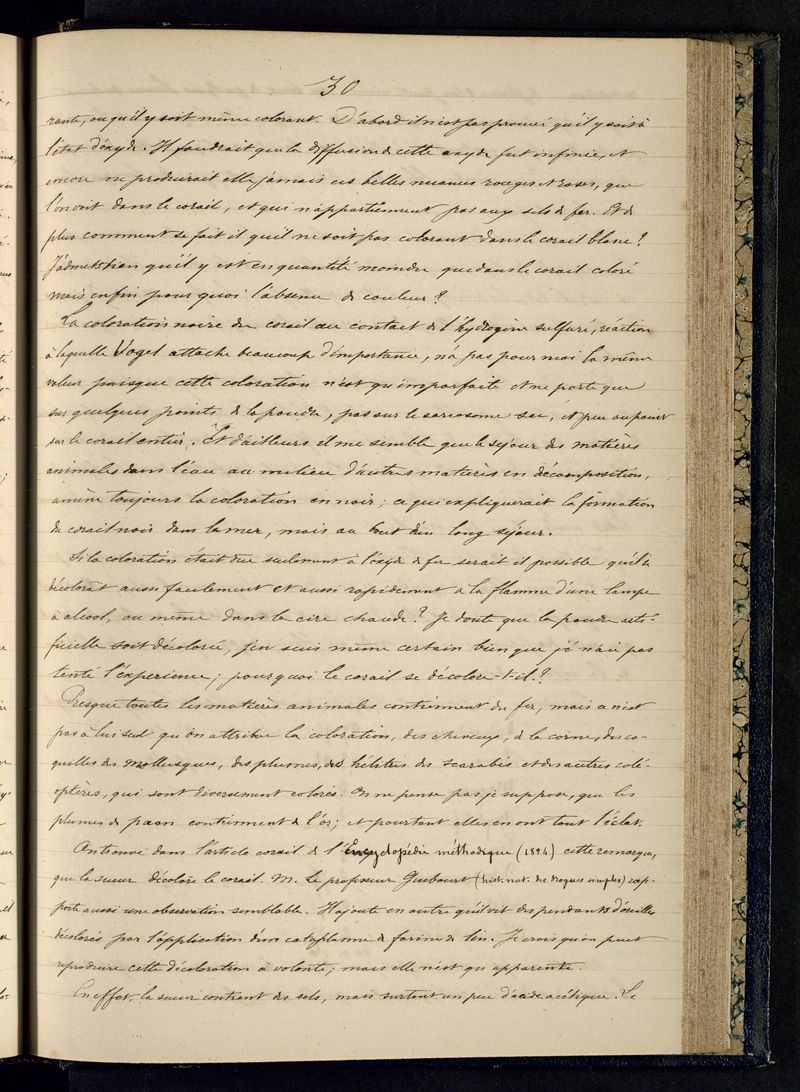 30
rante, ou qu'il y soit même colorant. D'abord il n'est pas prouvé qu'il y soit à
l'état d'oxyde. Il faudrait que la diffusion de cette oxyde fut infinie, et
encore ne produirait elle jamais ces belles nuances rouges et roses, que
l'on voit dans le corail, et qui n'appartiennent pas aux sels de fer. Et de
plus comment se fait il qu'il ne soit pas colorant dans le corail blanc?
J'admets bien qu'il y est en quantité moindre que dans le corail coloré
mais enfin pourquoi l'absence de couleur?
La coloration noire du corail au contact de l'hydrogène sulfuré, réaction
à laquelle Vogel attache beaucoup d'importance, n'a pas pour moi la même
valeur puisque cette coloration n'est qu'imparfaite et ne porte que
sur quelques points de la poudre, pas sur le sarcosome sec, et peu ou point
sur le corail entier. Et d'ailleurs il me semble que le séjour des matières
animales dans l'eau au milieu d'autres matières en décomposition,
amène toujours la coloration en noir; ce qui expliquerait la formation
du corail noir dans la mer, mais au bout d'un long séjour.
Si la coloration était due seulement à l'oxyde de fer serait il possible qu'il se
décolorât aussi facilement et aussi rapidement à la flamme d'une lampe
à alcool, ou même dans la cire chaude? Je doute que la poudre arti-
ficielle soit décolorée, j'en suis même certain bien que je n'aie pas
tenté l'expérience; pourquoi le corail se décolore-t-il?
Presque toutes les matières animales contiennent du fer, mais ce n'est
pas à lui seul qu'on attribue la coloration, des cheveux, de la corne, des co-
quilles des mollusques, des plumes, des hélitres des scarabés et des autres colé-
optères, qui sont diversement colorés. On ne pense pas je suppose, que les
plumes de paon contiennent de l'or; et pourtant elles en ont tout l'éclat.
On trouve dans l'article corail de l'Encyclopédie méthodique (1824) cette remarque,
que la sueur décolore le corail. M. Le professeur Guibourt (hist. nat. des drogues simples) rap-
porte aussi une observation semblable. Il ajoute en outre qu'il vit des pendants d'oreilles
décolorés par l'application d'un cataplasme de farine de lin. Je crois qu'on peut
reproduire cette décoloration à volonté; mais elle n'est qu'apparente.
En effet, la sueur contient des sels, mais surtout un peu d'acide acétique. Le